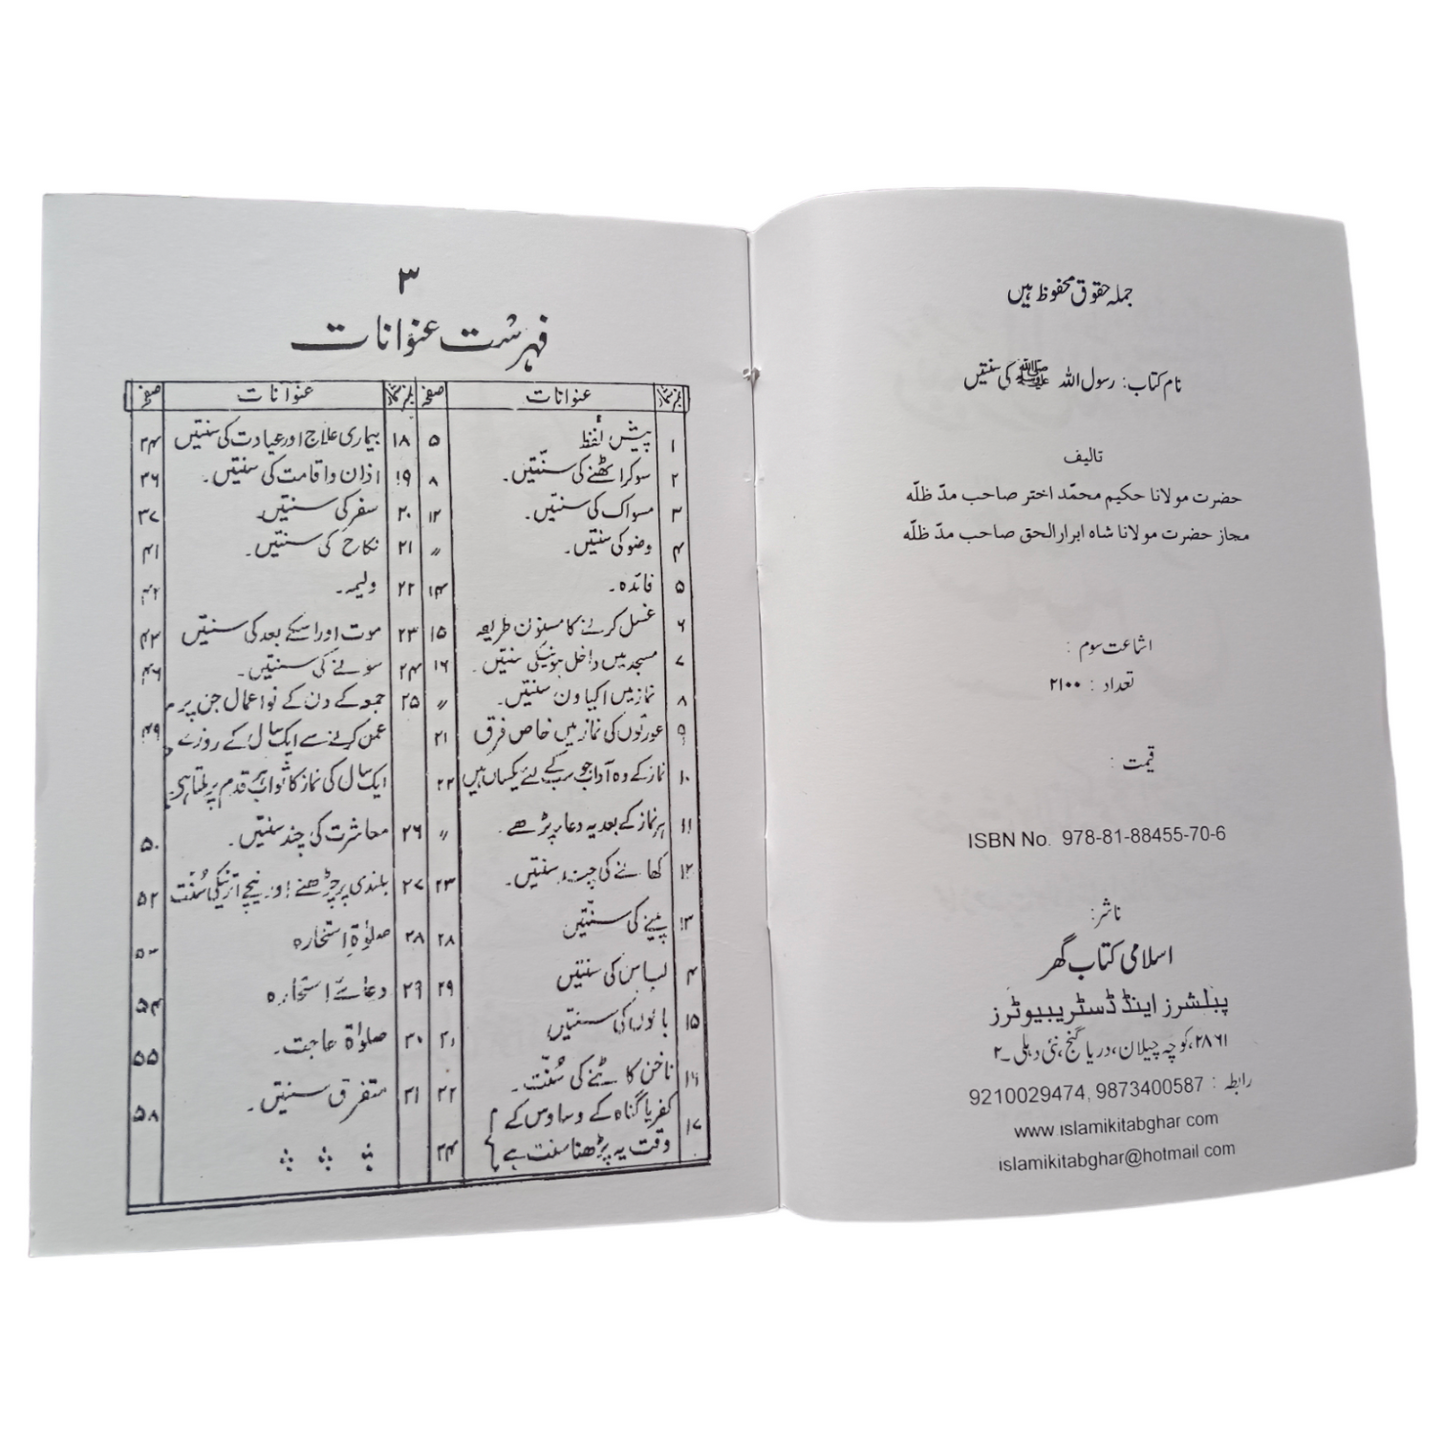 جملہ حقوق محفوظ ہیں
نام کتاب: رسول اللہ ﷺ کی سنتیں
تالیف
حضرت مولانا حکیم محمّد اختر صاحب مدّ ظلّہ
مجاز حضرت مولانا شاہ ابرارالحق صاحب مدّ ظلّہ
اشاعت سوم :
تعداد : ۲۱۰۰
قیمت :
ISBN No. 978-81-88455-70-6
ناشر:
اسلامی کتاب گھر
پبلشرز اینڈ ڈسٹریبیوٹرز
۲۸۶۱، کوچہ چیلان، دریا گنج، نئی دہلی ۔۲
رابطہ : 9210029474, 9873400587
www.islamikitabghar.com
islamikitabghar@hotmail.com
۳
فہرست عنوانات
نمبر شمار عنوانات صفحہ نمبر شمار عنوانات صفحہ
۱ پیش لفظ ۵
۲ سو کر اٹھنے کی سنتیں۔ ۸
۳ مسواک کی سنتیں۔ ۱۲
۴ وضو کی سنتیں۔ 〃
۵ فائدہ۔ ۱۴
۶ غسل کرنے کا مسنون طریقہ ۱۵
۷ مسجد میں داخل ہونیکی سنتیں۔ ۱۶
۸ نماز میں اکیاون سنتیں۔ 〃
۹ عورتوں کی نماز میں خاص فرق ۲۱
۱۰ نماز کے وہ آداب جو سب کے لئے یکساں ہیں ۲۲
۱۱ ہر نماز کے بعد یہ دعا پڑھے۔ 〃
۱۲ کھانے کی چند سنتیں۔ ۲۳
۱۳ پینے کی سنتیں ۲۸
۱۴ لباس کی سنتیں ۲۹
۱۵ بالوں کی سنتیں ۳۱
۱۶ ناخن کاٹنے کی سُنّت۔ ۳۲
۱۷ کفر یا گناہ کے وساوس کے
وقت یہ پڑھنا سنت ہے ۳۴
۱۸ بیماری علاج اور عیادت کی سنتیں ۳۴
۱۹ اذان و اقامت کی سنتیں۔ ۳۶
۲۰ سفر کی سنتیں ۳۷
۲۱ نکاح کی سنتیں۔ ۴۱
۲۲ ولیمہ۔ ۴۲
۲۳ موت اور اسکے بعد کی سنتیں ۴۲
۲۴ سونے کی سنتیں۔ ۴۶
۲۵ جمعہ کے دن کے نو اعمال جن پر
عمل کرنے سے ایک سال کے روزے ۴۹
ایک سال کی نماز کا ثواب ہر قدم پر ملتا ہے۔
۲۶ معاشرت کی چند سنتیں۔ ۵۰
۲۷ بلندی پر چڑھنے اور نیچے اترنیکی سُنّت ۵۲
۲۸ صلوٰۃ استخارہ ۵۳
۲۹ دعائے استخارہ ۵۴
۳۰ صلوٰۃ حاجت۔ ۵۵
۳۱ متفرق سنتیں۔ ۵۸